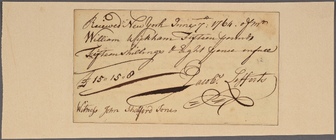 Received New York June 7th. 1764. of Mr.
William Wickham Fifteen pounds
Fifteen Shillings & Eight pence in full
£ 15=15=8
Jacobs. Lefferts
Witness John